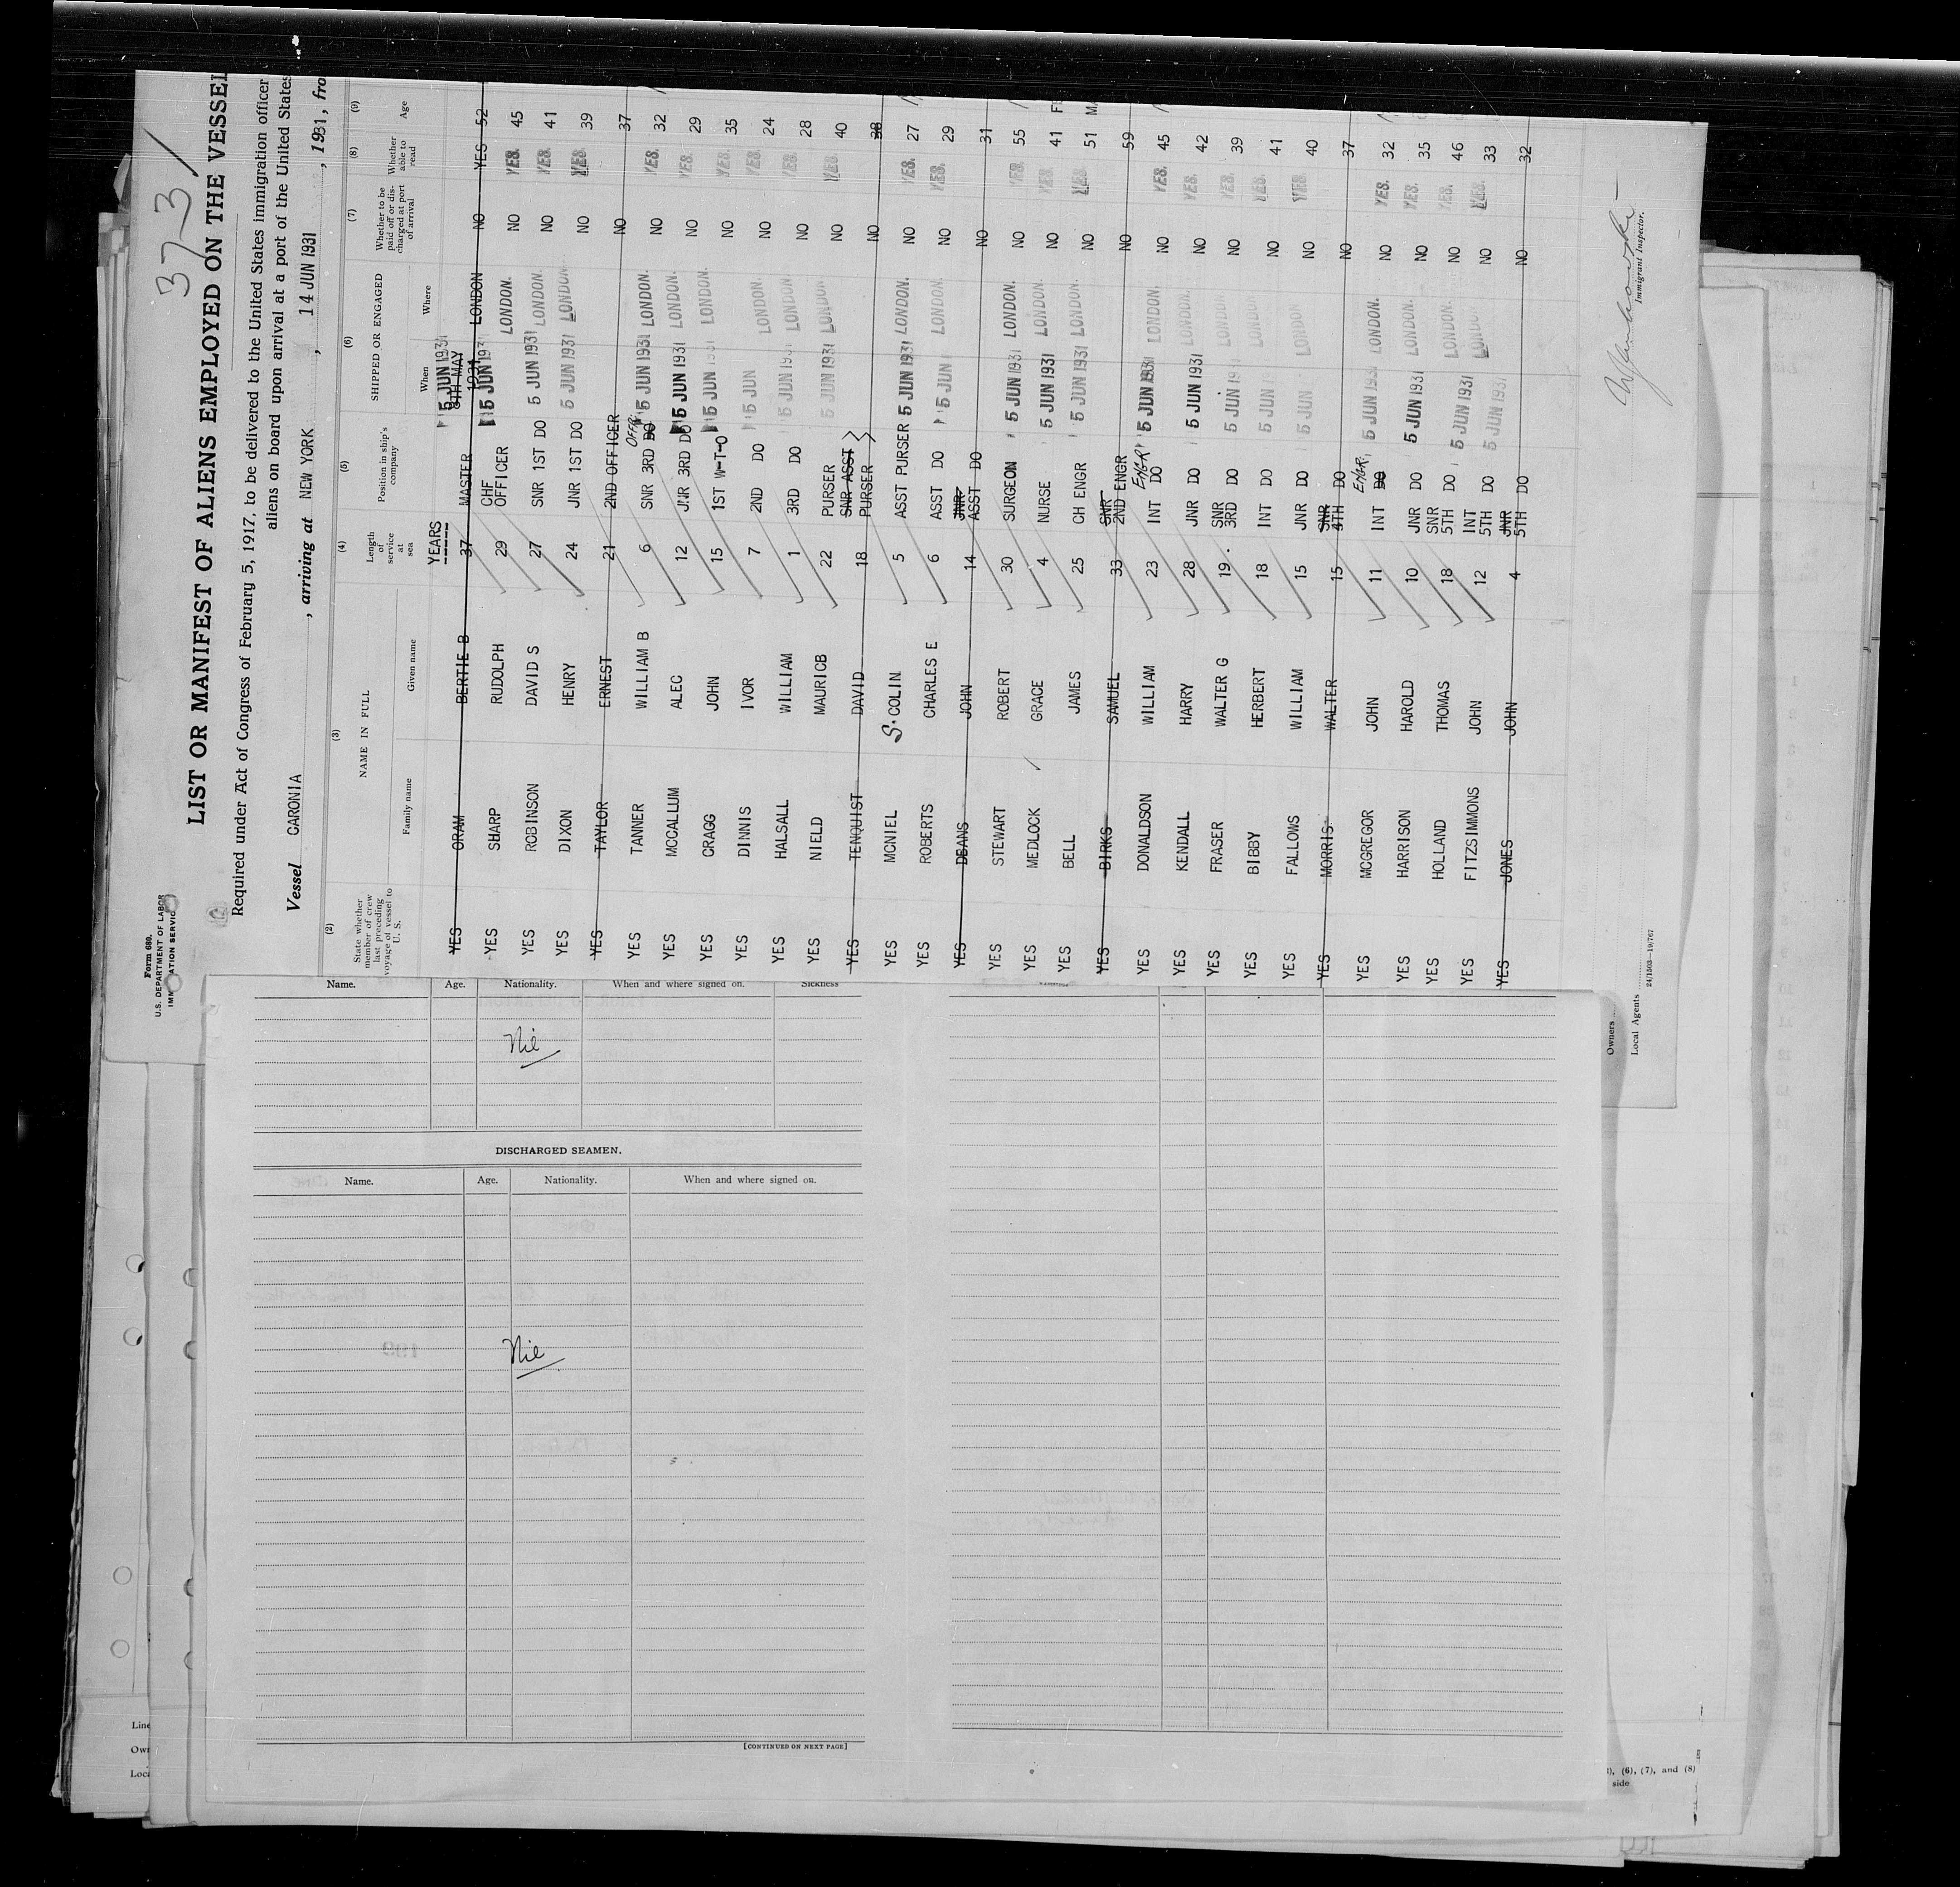 37-3/
LIST OR MANIFEST OF ALIENS EMPLOYED ON THE VESSEL
Form 680.
U.S. DEPARTMENT OF LABOR
Required under Act of Congress of February 5, 1917, to be delivered to the United States immigration officer
aliens on board upon arrival at a port of the United States
Vessel CARONIA, arriving at NEW YORK, 14 JUN 1931, 1931, fro
(2) (3) (4) (5) (6) (7) (8) (9)
State whether member of crew last preceding voyage of vessel to U. S. NAME IN FULL Family name Given name Length of service at sea Position in ship's company SHIPPED OR ENGAGED When Where Whether to be paid off or discharged at port of arrival Whether able to read Age
YEARS 5 JUN 1931
YES ORAM BERTIE B 37 MASTER 8TH MAY 1931 LONDON NO YES 52
YES SHARP RUDOLPH 29 CHF OFFICER 5 JUN 1931 LONDON. NO YES. 45
YES ROBINSON DAVID S 27 SNR 1ST DO 5 JUN 1931 LONDON. NO YES. 41
YES DIXON HENRY 24 JNR 1ST DO 5 JUN 1931 LONDON. NO YES. 39
YES TAYLOR ERNEST 21 2ND OFFICER NO 37
YES TANNER WILLIAM B 6 SNR 3RD DO OFFR. 5 JUN 1931 LONDON. NO YES. 32
YES MCCALLUM ALEC 12 JNR 3RD DO 5 JUN 1931 LONDON. NO YES. 29
YES CRAGG JOHN 15 1ST W-T-O 5 JUN 1931 LONDON. NO YES. 35
YES DINNIS IVOR 7 2ND DO 5 JUN LONDON. NO YES. 24
YES HALSALL WILLIAM 1 3RD DO 5 JUN 1931 LONDON. NO YES. 28
YES NIELD MAURICB 22 PURSER 5 JUN 1931 LONDON NO YES. 40
YES TENQUIST DAVID 18 SNR ASST PURSER NO 38
YES MCNIEL S. COLIN 5 ASST PURSER 5 JUN 1931 LONDON. NO YES. 27
YES ROBERTS CHARLES E 6 ASST DO 5 JUN LONDON. NO YES. 29
YES DEANS JOHN 14 JNR ASST DO NO 31
YES STEWART ROBERT 30 SURGEON 5 JUN 1931 LONDON. NO YES. 55
YES MEDLOCK GRACE 4 NURSE 5 JUN 1931 LONDON. NO YES. 41 FE
YES BELL JAMES 25 CH ENGR 5 JUN 1931 LONDON. NO YES. 51 MA
YES BIRKS SAMUEL 33 SNR 2ND ENGR NO 59
YES DONALDSON WILLIAM 23 INT DO ENGR 5 JUN 1931 LONDON. NO YES. 45
YES KENDALL HARRY 28 JNR DO 5 JUN 1931 LONDON. NO YES. 42
YES FRASER WALTER G 19. SNR 3RD DO 5 JUN 1931 LONDON. NO YES. 39
YES BIBBY HERBERT 18 INT DO 5 JUN 1931 LONDON. NO YES. 41
YES FALLOWS WILLIAM 15 JNR DO 5 JUN LONDON NO YES. 40
YES MORRIS WALTER 15 SNR 4TH DO NO 37
YES MCGREGOR JOHN 11 INT DO ENGR. 5 JUN 1931 LONDON. NO YES. 32
YES HARRISON HAROLD 10 JNR DO 5 JUN 1931 LONDON. NO YES. 35
YES HOLLAND THOMAS 18 SNR 5TH DO 5 JUN 1931 LONDON. NO YES. 46
YES FITZSIMMONS JOHN 12 INT 5TH DO 5 JUN 1931 LONDON. NO YES. 33
YES JONES JOHN 4 JNR 5TH DO NO 32
Immigrant Inspector.
Owners
Local Agents
24/1503—19/767
Name. Age. Nationality. When and where signed on. Sickness
Nil
DISCHARGED SEAMEN.
Name. Age. Nationality. When and where signed on.
Nil
[CONTINUED ON NEXT PAGE]
Line
Own
Loca
), (6), (7), and (8)
side